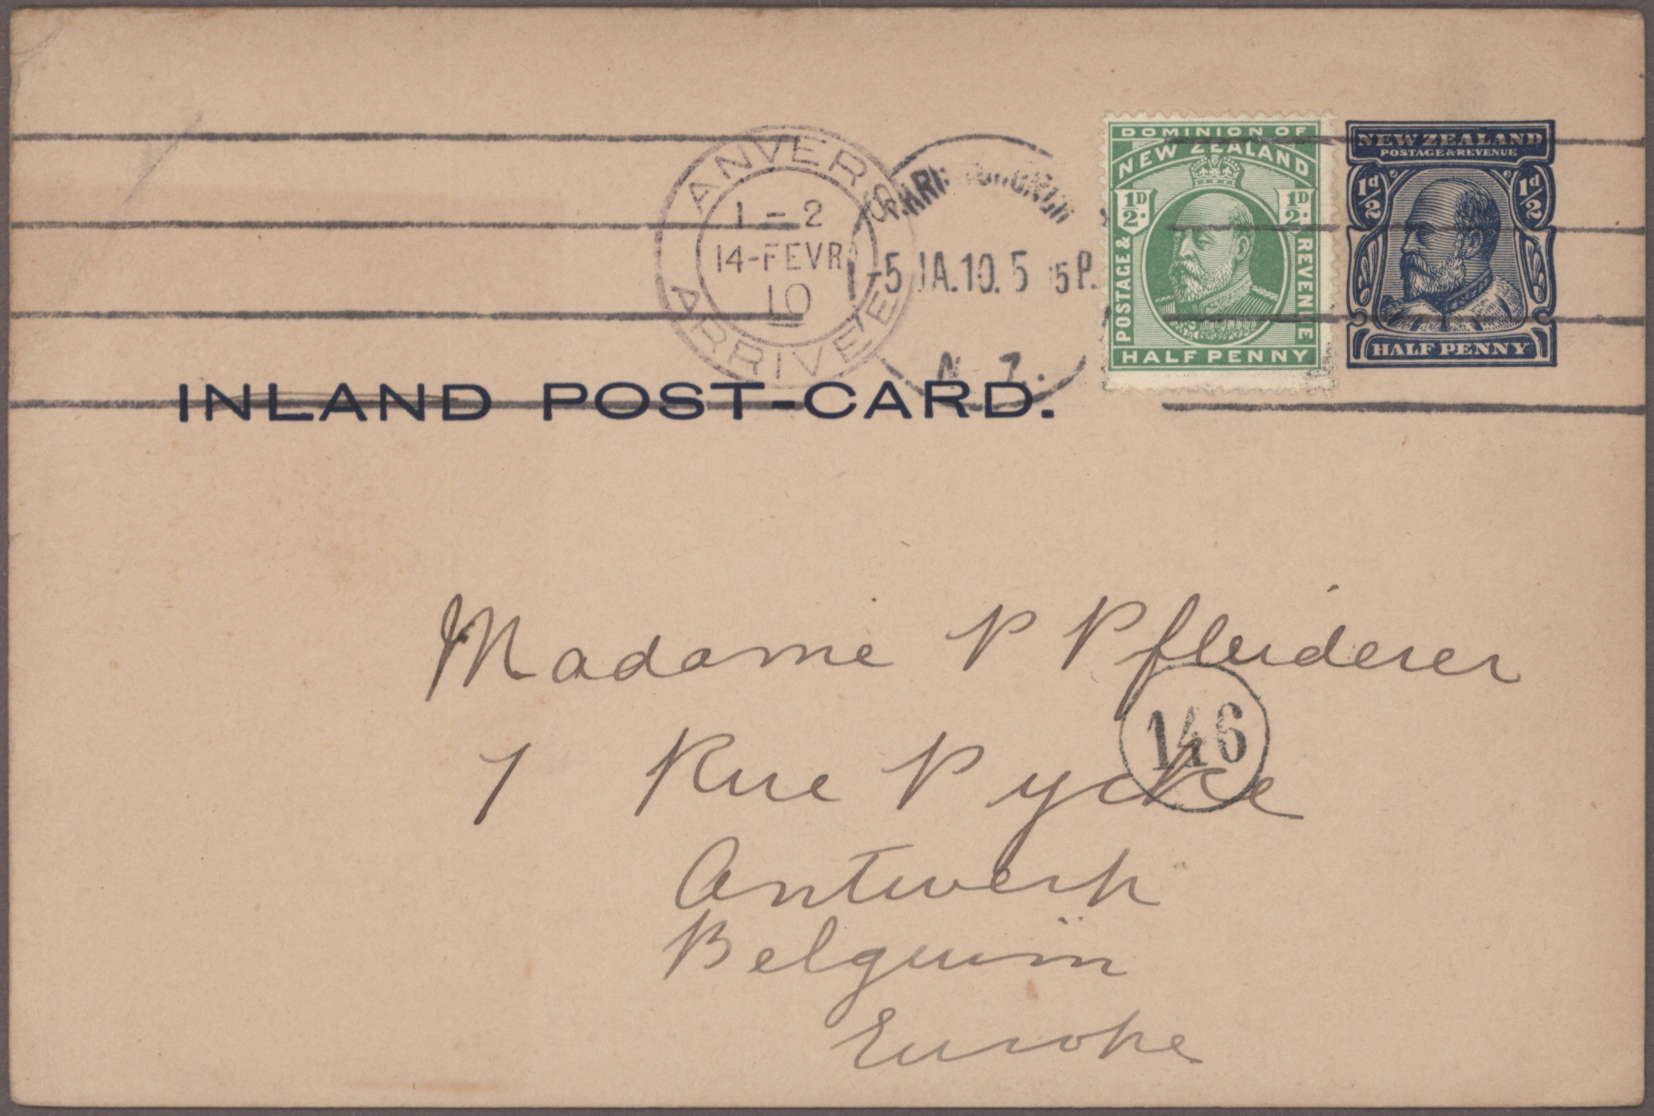 ANVERS
1 - 2
14-FEVR
10
ARRIVÉE
CHRISTCHURCH
-5 JA.10. 5 15P.
N. Z.
DOMINION OF
NEW ZEALAND
½D. ½D.
POSTAGE & REVENUE
HALF PENNY
NEW ZEALAND
POSTAGE & REVENUE
½d ½d
HALF PENNY
INLAND POST-CARD.
Madame P Pfleiderer
146
7 Rue Pycke
Antwerp
Belguim
Europe